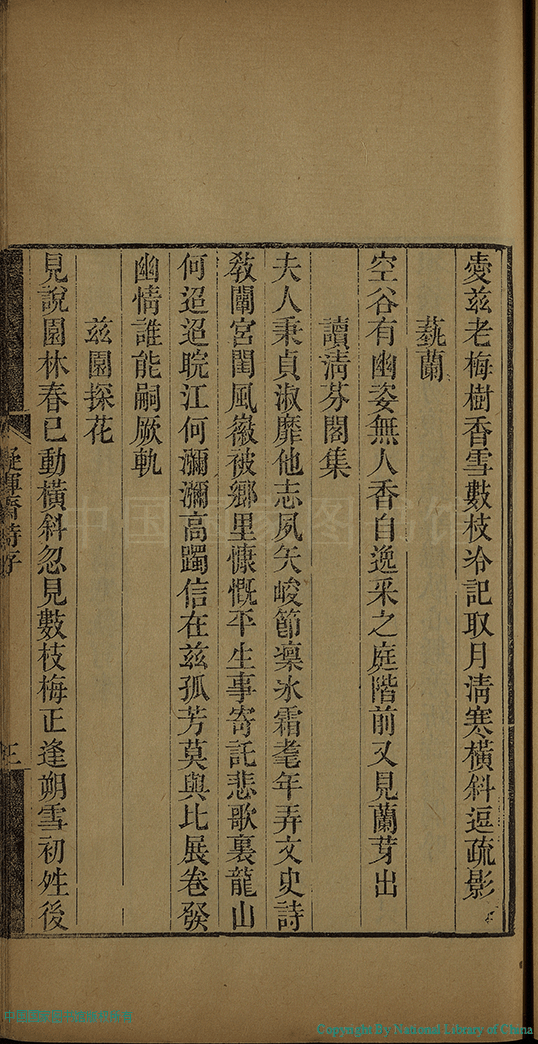 爱茲老梅樹香雪數枝冷記取月清寒橫斜逗疏影
蓺蘭
空谷有幽姿無人香自逸采之庭階前又見蘭芽出
讀淸芬閣集
夫人秉貞淑靡他志夙矢峻節凜冰霜耄年弄文史詩
敎闡宮閨風徽被鄉里慷慨平生事寄託悲歌裏龍山
何迢迢晥江何瀰瀰高躅信在茲孤芳莫與比展卷發
幽情誰能嗣厥軌
茲園探花
見說園林春已動橫斜忽見數枝梅正逢朔雪初姓後
詩存
三
中国国家图书馆
Copyright By National Library of China